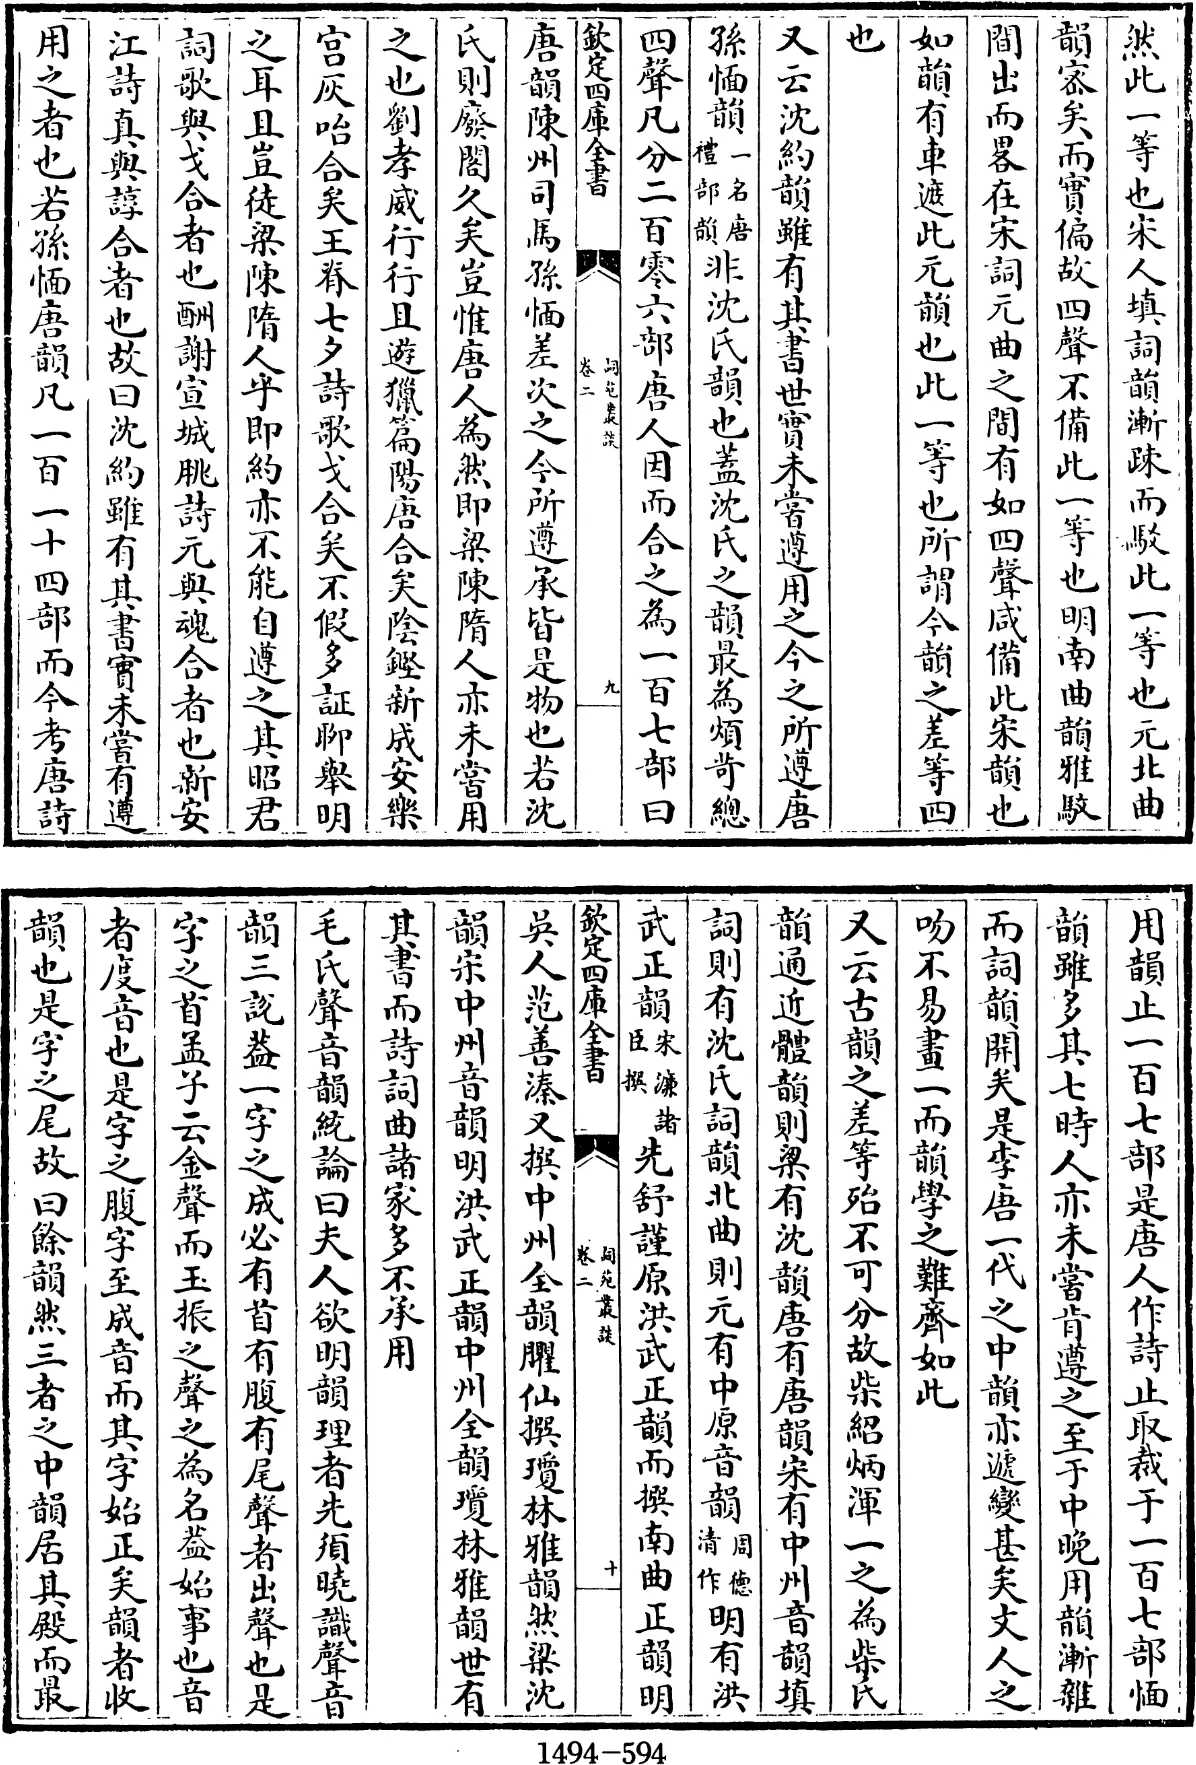 然此一等也宋人填詞韻漸疎而駁此一等也元北曲
韻宻矣而實偏故四聲不備此一等也明南曲韻雅駁
間出而畧在宋詞元曲之間有如四聲咸備此宋韻也
如韻有車遮此元韻也此一等也所謂今韻之差等四
也
又云沈約韻雖有其書世實未嘗遵用之今之所遵唐
孫愐韻一名唐禮部韻非沈氏韻也蓋沈氏之韻最為煩苛總
四聲凡分二百零六部唐人因而合之為一百七部曰
欽定四庫全書 詞苑叢談 卷二 九
唐韻陳州司馬孫愐差次之今所遵承皆是物也若沈
氏則廢閣久矣豈惟唐人為然即梁陳隋人亦未嘗用
之也劉孝威行行且遊獵篇陽唐合矣陰鏗新成安樂
宫灰咍合矣王脊七夕詩歌戈合矣不假多証聊舉明
之耳且豈徒梁陳隋人乎即約亦不能自遵之其昭君
詞歌與戈合者也酬謝宣城朓詩元與魂合者也新安
江詩真與諄合者也故曰沈約雖有其書實未嘗有遵
用之者也若孫愐唐韻凡一百一十四部而今考唐詩
用韻止一百七部是唐人作詩止取裁于一百七部愐
韻雖多其七時人亦未嘗肯遵之至于中晚用韻漸雜
而詞韻開矣是李唐一代之中韻亦遞變甚矣文人之
吻不易畫一而韻學之難齊如此
又云古韻之差等殆不可分故柴紹炳渾一之為柴氏
韻通近體韻則梁有沈韻唐有唐韻宋有中州音韻填
詞則有沈氏詞韻北曲則元有中原音韻周德清作明有洪
武正韻宋濂諸臣撰先舒謹原洪武正韻而撰南曲正韻明
欽定四庫全書 詞苑叢談 卷二 十
吳人范善溱又撰中州全韻臞仙撰瓊林雅韻然梁沈
韻宋中州音韻明洪武正韻中州全韻瓊林雅韻世有
其書而詩詞曲諸家多不承用
毛氏聲音韻統論曰夫人欲明韻理者先須曉識聲音
韻三說葢一字之成必有首有腹有尾聲者出聲也是
字之首孟子云金聲而玉振之聲之為名葢始事也音
者度音也是字之腹字至成音而其字始正矣韻者收
韻也是字之尾故曰餘韻然三者之中韻居其殿而最
1494-594